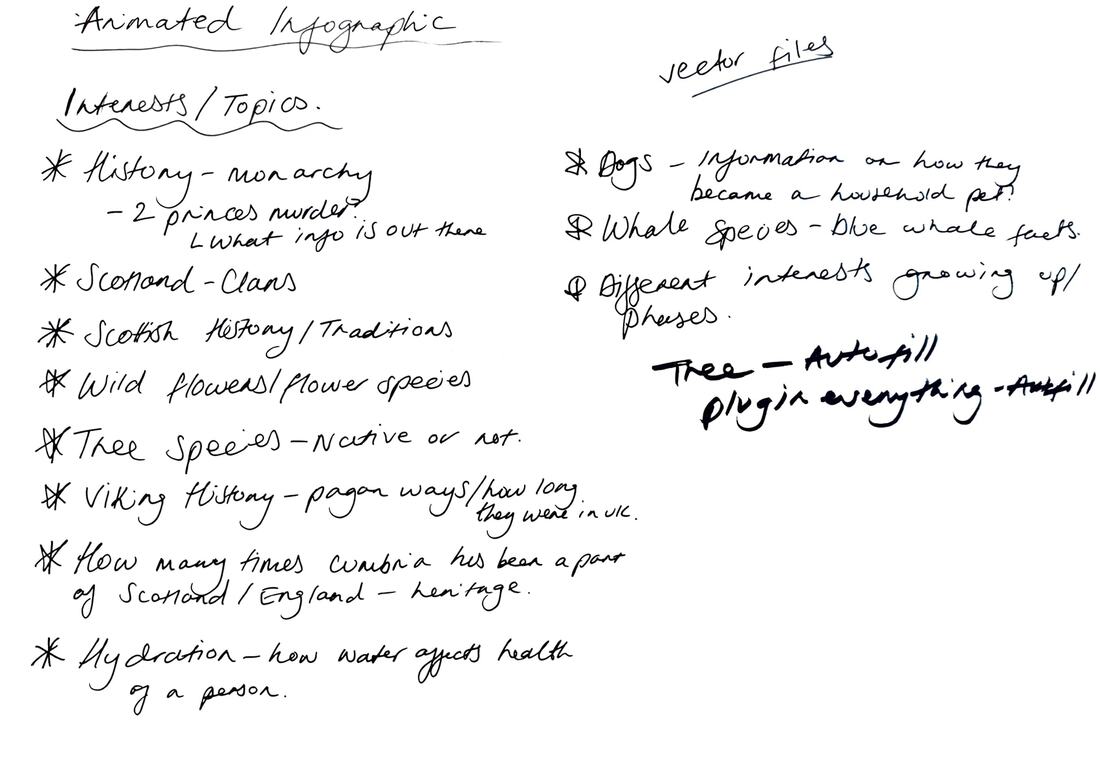 Animated Infographic
Interests/Topics.
* History - monarchy
- 2 princes murder?
L What info is out there
* Scotland - Clans
* Scottish History/Traditions
* Wild flowers/flower species
* Tree species - Native or not.
* Viking History - pagan ways/how long
they were in UK.
* How many times Cumbria has been a part
of Scotland/England - heritage.
* Hydration - how water affects health
of a person.
vector files
* Dogs - Information on how they
became a household pet?
* Whale species - blue whale facts.
* Different interests growing up/
phases.
Tree - Autofill
plugin everything - Autofill